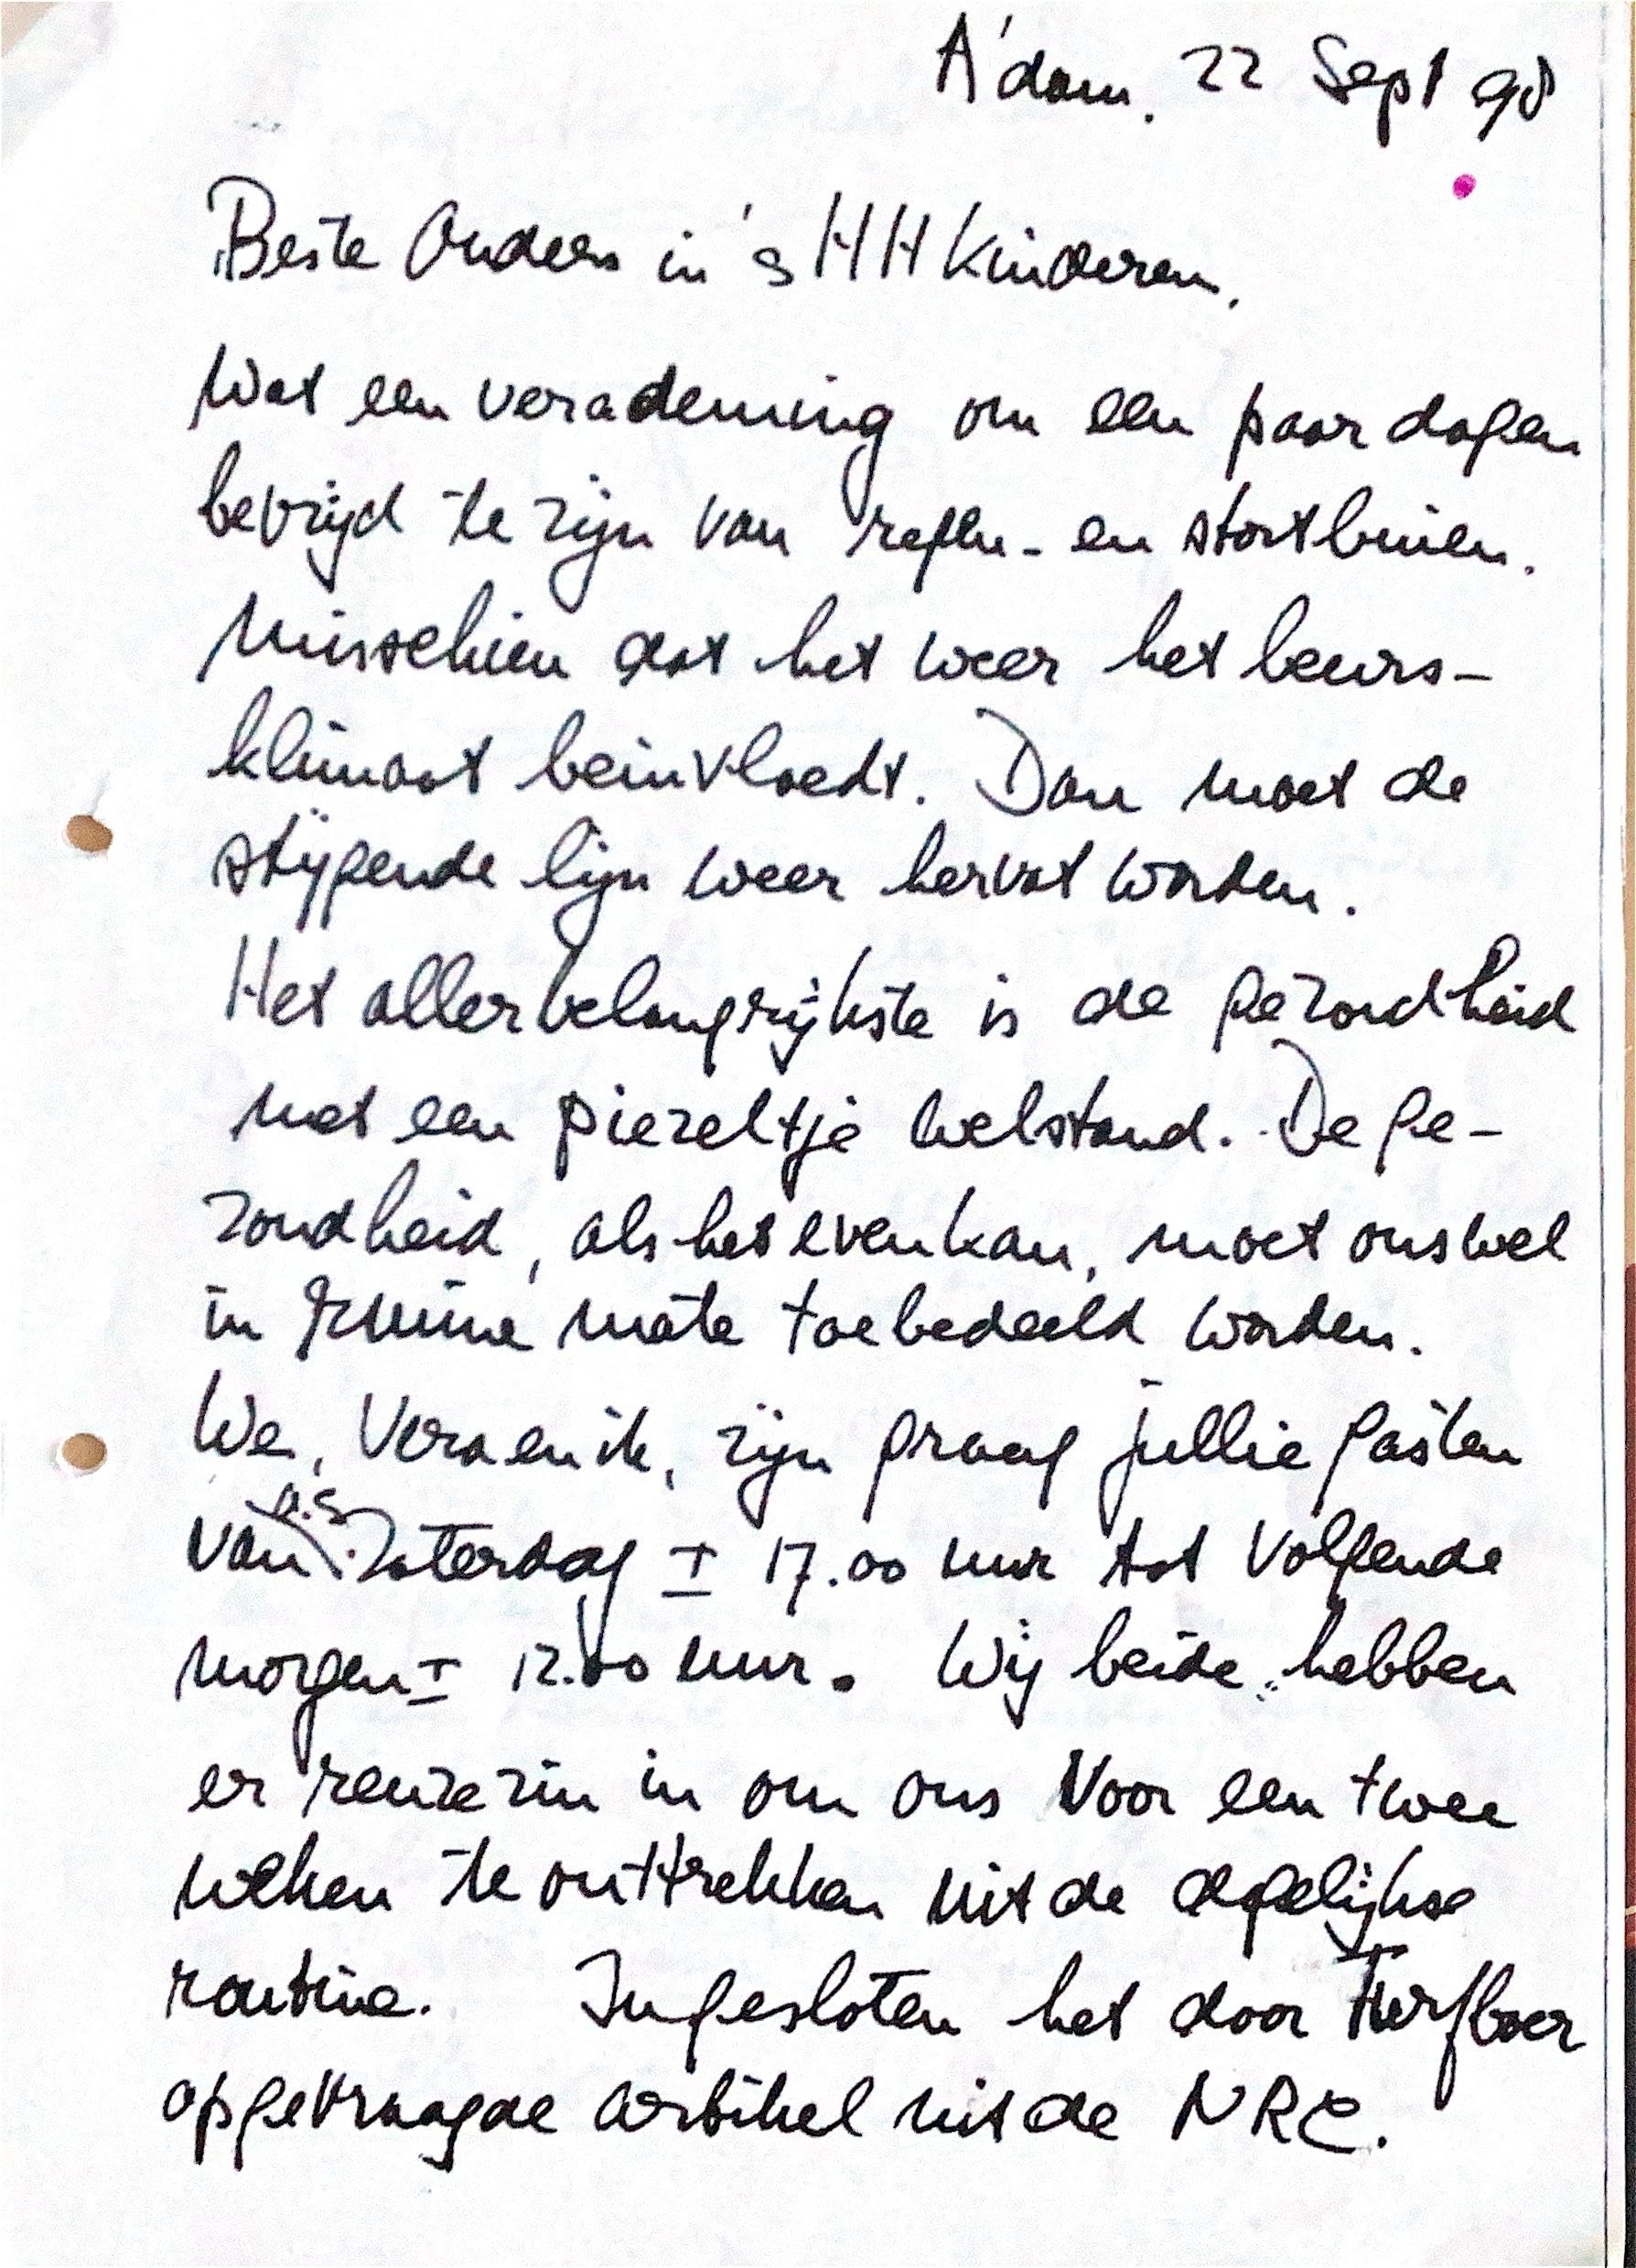 A'dam. 22 Sept 98
Beste Ouders in 's HH Kinderen,
Wat een verademing om een paar dagen
bevrijd te zijn van regen- en stortbuien.
Misschien dat het weer het beurs-
klimaat beinvloedt. Dan moet de
stijgende lijn weer hervat worden.
Het allerbelangrijkste is de gezondheid
met een piezeltje welstand. De ge-
zondheid, als het even kan, moet ons wel
in ruime mate toebedeeld worden.
We, Vera en ik, zijn graag jullie gasten
van a.s. Zaterdag ± 17.00 uur tot volgende
morgen ± 12.00 uur. Wij beide hebben
er reuze zin in om ons voor een twee
weken te onttrekken uit de dgelijkse
routine. Ingesloten het door
opgevraagde artikel uit de NRC.